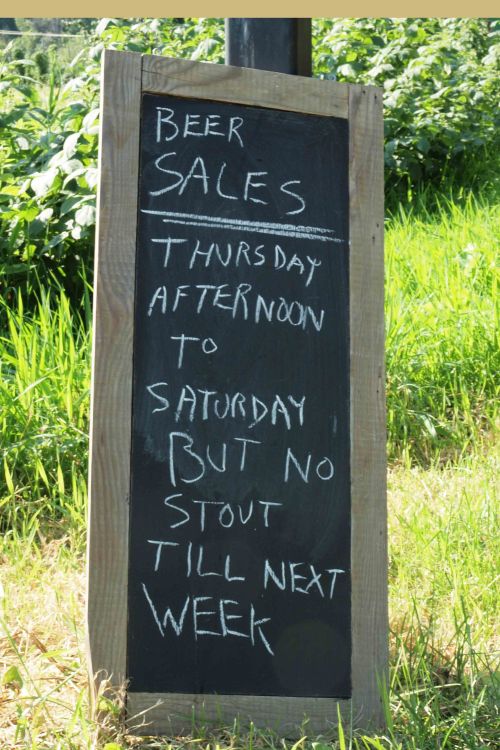 BEER
SALES
THURSDAY
AFTERNOON
TO
SATURDAY
BUT NO
STOUT
TILL NEXT
WEEK